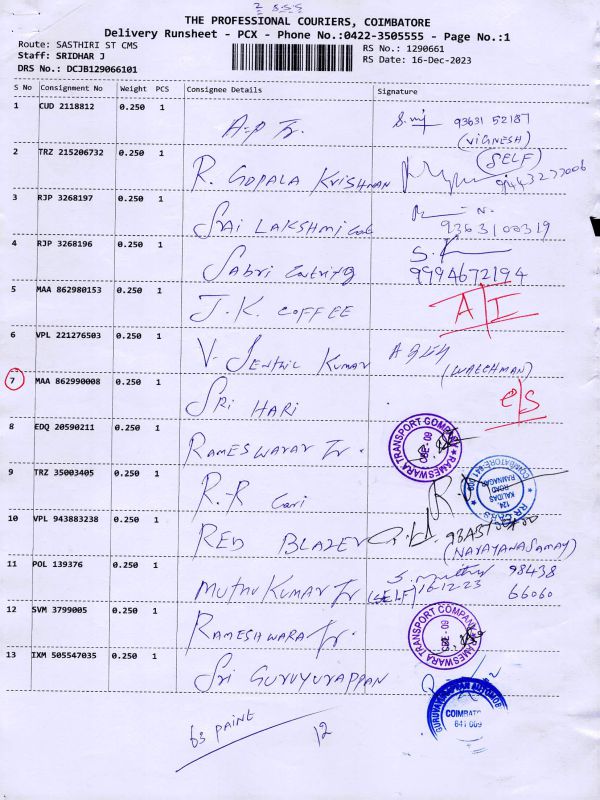 THE PROFESSIONAL COURIERS, COIMBATORE
Delivery Runsheet - PCX - Phone No.:0422-3505555 - Page No.:1
Route: SASTHIRI ST CMS
RS No.: 1290661
Staff: SRIDHAR J
RS Date: 16-Dec-2023
DRS No.: DCJB129066101
S No Consignment No Weight PCS Consignee Details Signature
1 CUD 2118812 0.250 1 93631 52187
(VIGNESH)
2 TRZ 215206732 0.250 1 R. GOPALA KRISHNAN (SELF)
3 RJP 3268197 0.250 1 SRI LAKSHMI 9363100319
4 RJP 3268196 0.250 1 Sabri 9994672194
5 MAA 862980153 0.250 1 J.K. COFFEE A/I
6 VPL 221276503 0.250 1 V. SENTHIL KUMAR
(WATCHMAN)
7 MAA 862990008 0.250 1 SRI HARI C/S
8 EDQ 20590211 0.250 1 RAMESWARAR Tr. RAMESWARA TRANSPORT COMPANY
9 TRZ 35003405 0.250 1 R.R Cari 124, KALIDAS ROAD RAMNAGAR COIMBATORE-641 009
10 VPL 943883238 0.250 1 RED BLAZER
(NARAYANASAMAY)
11 POL 139376 0.250 1 MUTHU KUMAR Tr (SELF) 16-12-23 98438
66060
12 SVM 3799005 0.250 1 RAMESHWARA Tr. RAMESWARA TRANSPORT COMPANY
13 IXM 505547035 0.250 1 Sri GURUYURAPPAN
COIMBATO
641 009
63 PAINT 12